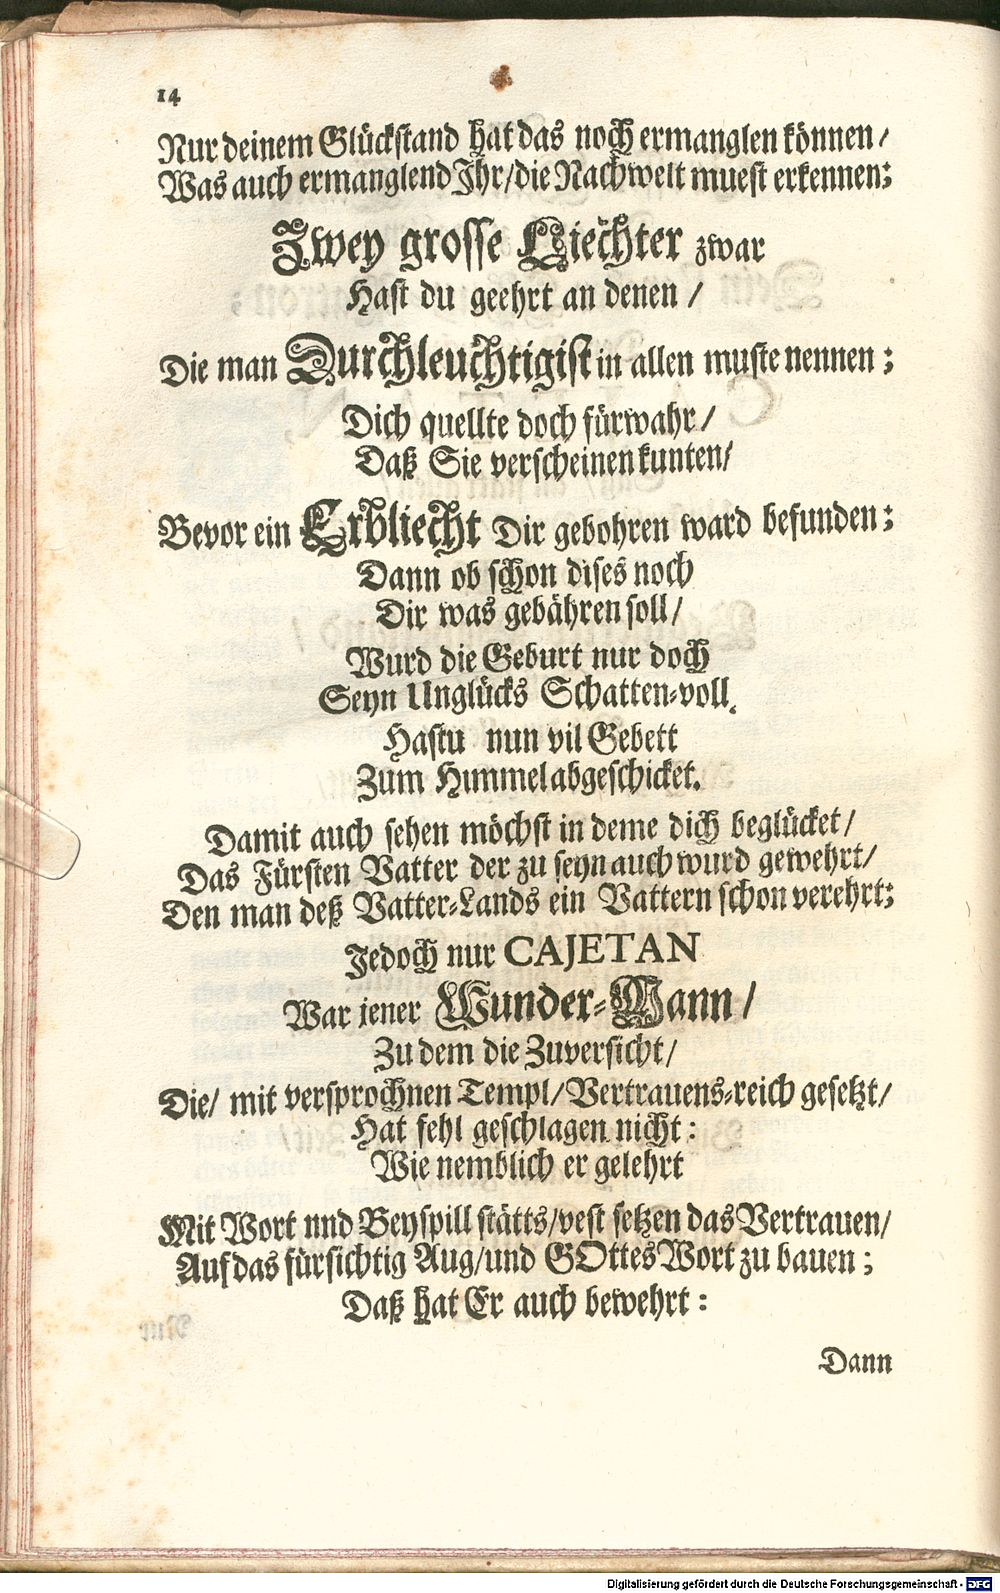 14
Nur deinem Glückstand hat das noch ermanglen können/
Was auch ermanglend Ihr/die Nachwelt muest erkennen:
Zwey grosse Liechter zwar
Hast du geehrt an denen /
Die man Durchleuchtigist in allen muste nennen ;
Dich quellte doch fürwahr/
Daß Sie verscheinen kunten/
Bevor ein Erbliecht Dir gebohren ward befunden ;
Dann ob schon dises noch
Dir was gebähren soll/
Wurd die Geburt nur doch
Seyn Unglücks Schatten-voll.
Hastu nun vil Gebett
Zum Himmel abgeschicket.
Damit auch sehen möchst in deme dich beglücket/
Das Fürsten Vatter der zu seyn auch wurd gewehrt/
Den man deß Vatter-Lands ein Vattern schon verehrt:
Jedoch nur CAJETAN
War jener Wunder-Mann/
Zu dem die Zuversicht/
Die/ mit versprochnen Templ/Vertrauens-reich gesetzt/
Hat fehl geschlagen nicht:
Wie nemblich er gelehrt
Mit Wort nnd Beyspill stätts/vest setzen das Vertrauen/
Auf das fürsichtig Aug/und GOttes Wort zu bauen ;
Daß hat Er auch bewehrt :
Dann
Digitalisierung gefördert durch die Deutsche Forschungsgemeinschaft - DFG